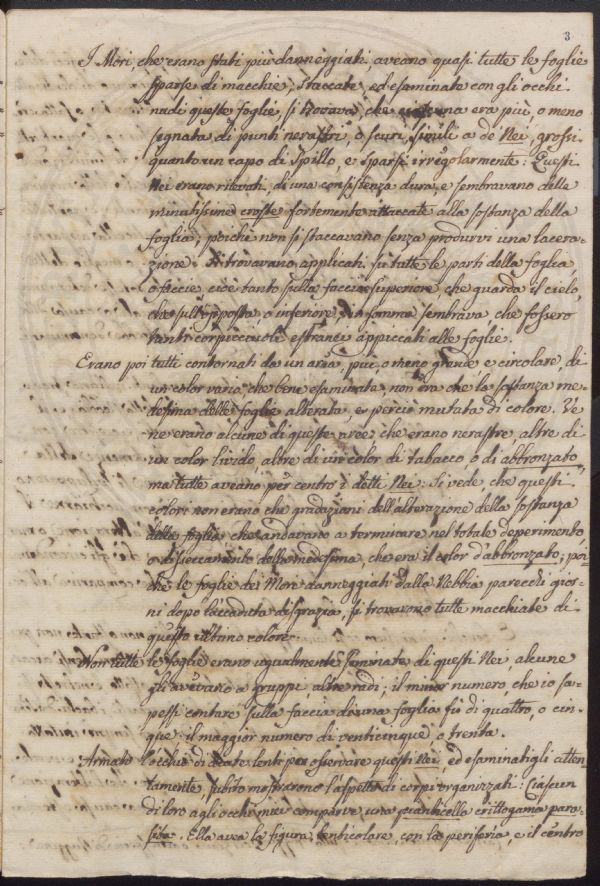 3
I Mori, che erano stati più danneggiati, aveano quasi tutte le foglie
sparse di macchie; staccate, ed esaminate con gli occhi
nudi queste foglie, si trovava, che era più, o meno
segnata di punti nerastri, o scuri, simili a de' Nei, grossi
quanto un capo di spillo, e sparsi irregolarmente: Questi
Nei erano rilevati, di una consistenza dura, e sembravano delle
minutissime croste fortemente attaccate alla sostanza della
foglia, poichè non si staccavano senza produrvi una lacera-
zione. Si trovavano applicati su tutte le parti della foglia
o faccie, cioè tanto sulla faccia superiore, che guarda il cielo,
che sull'opposta, o inferiore; in somma sembrava, che fossero
tanti corpicciuoli estranei appiccati alle foglie.
Erano poi tutti contornati da un area, più, o meno grande e circolare, di
un color vario, che bene esaminata, non era che la sostanza me-
desima delle foglie alterata, e perciò mutata di colore. Ve
ne erano alcune di queste aree, che erano nerastre, altre di
un color livido, altre di un color di tabacco, o di abbronzato,
ma tutte aveano per centro i detti Nei: Si vede che questi
colori non erano che gradazioni dell'alterazione della sostanza
della foglia, che andavano a terminare nel totale deperimento,
o disseccamento della medesima, che era il color d'abbronzato; poi-
chè le foglie dei Mori danneggiati dalla Nebbia parecchi gior-
ni dopo l'accaduta disgrazia, si trovarono tutte macchiate di
questo ultimo colore.
Non tutte le foglie erano ugualmente seminate di questi Nei, alcune
gli avevano a gruppi, altre radi; il minor numero, che io sa-
pessi contare sulla faccia di una foglia fu di quattro, o cin-
que: il maggior numero di venticinque, o trenta.
Armato l'occhio di acute lenti per osservare questi Nei, ed esaminatigli atten-
tamente, subito mostrarono l'aspetto di corpi organizzati. Ciascun
di loro agli occhi miei comparve una pianticella crittogama paras-
sita. Ella avea la figura lenticolare, con la periferia, e il centro